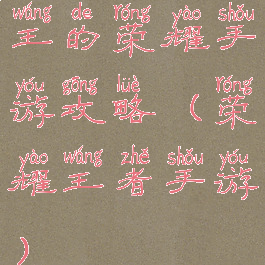 wáng de róng yào shǒu
王的荣耀手
yóu gōng lüè róng
游攻略（荣
yào wáng zhě shǒu yóu
耀王者手游
）